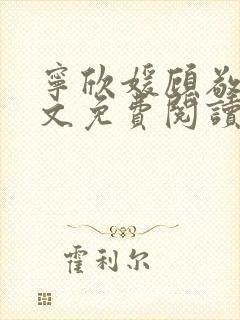 寧欣媛顧敬
文免費閱讀
霍利尔